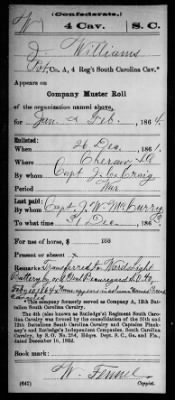 (Confederate.)
W 4 Cav. S. C.
J. Williams
Pvt, Co. A, 4 Reg't South Carolina Cav.*
Appears on
Company Muster Roll
of the organization named above,
for Jan & Feb, 1864
Enlisted:
When 26 Dec, 1861
Where Cheraw, SC
By whom Capt J. C. Craig
Period War
Last paid:
By whom Capt J. W. McCurry
To what time 31 Dec, 186
For use of horse, $ 100
Present or absent x
Remarks: Transferred to Wards Light
Battery by order Genl Beauregard
cancelled
*This company formerly served as Company A, 12th Battalion South Carolina Cavalry.
The 4th (also known as Rutledge's) Regiment South Carolina Cavalry was formed by the consolidation of the 10th and 12th Battalions South Carolina Cavalry and Captains
and Rutledge's Independent Companies. South Carolina Cavalry, by S. O. No.
December 16, 1862.
Book mark:
W. Fennel
(642) Copyist.